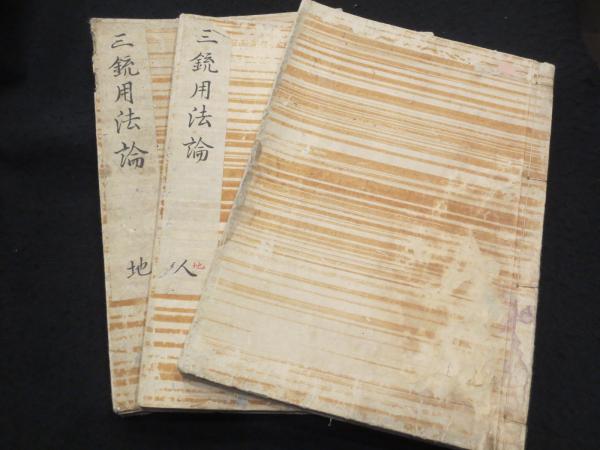 三銃用法論
地
三銃用法論
人
地